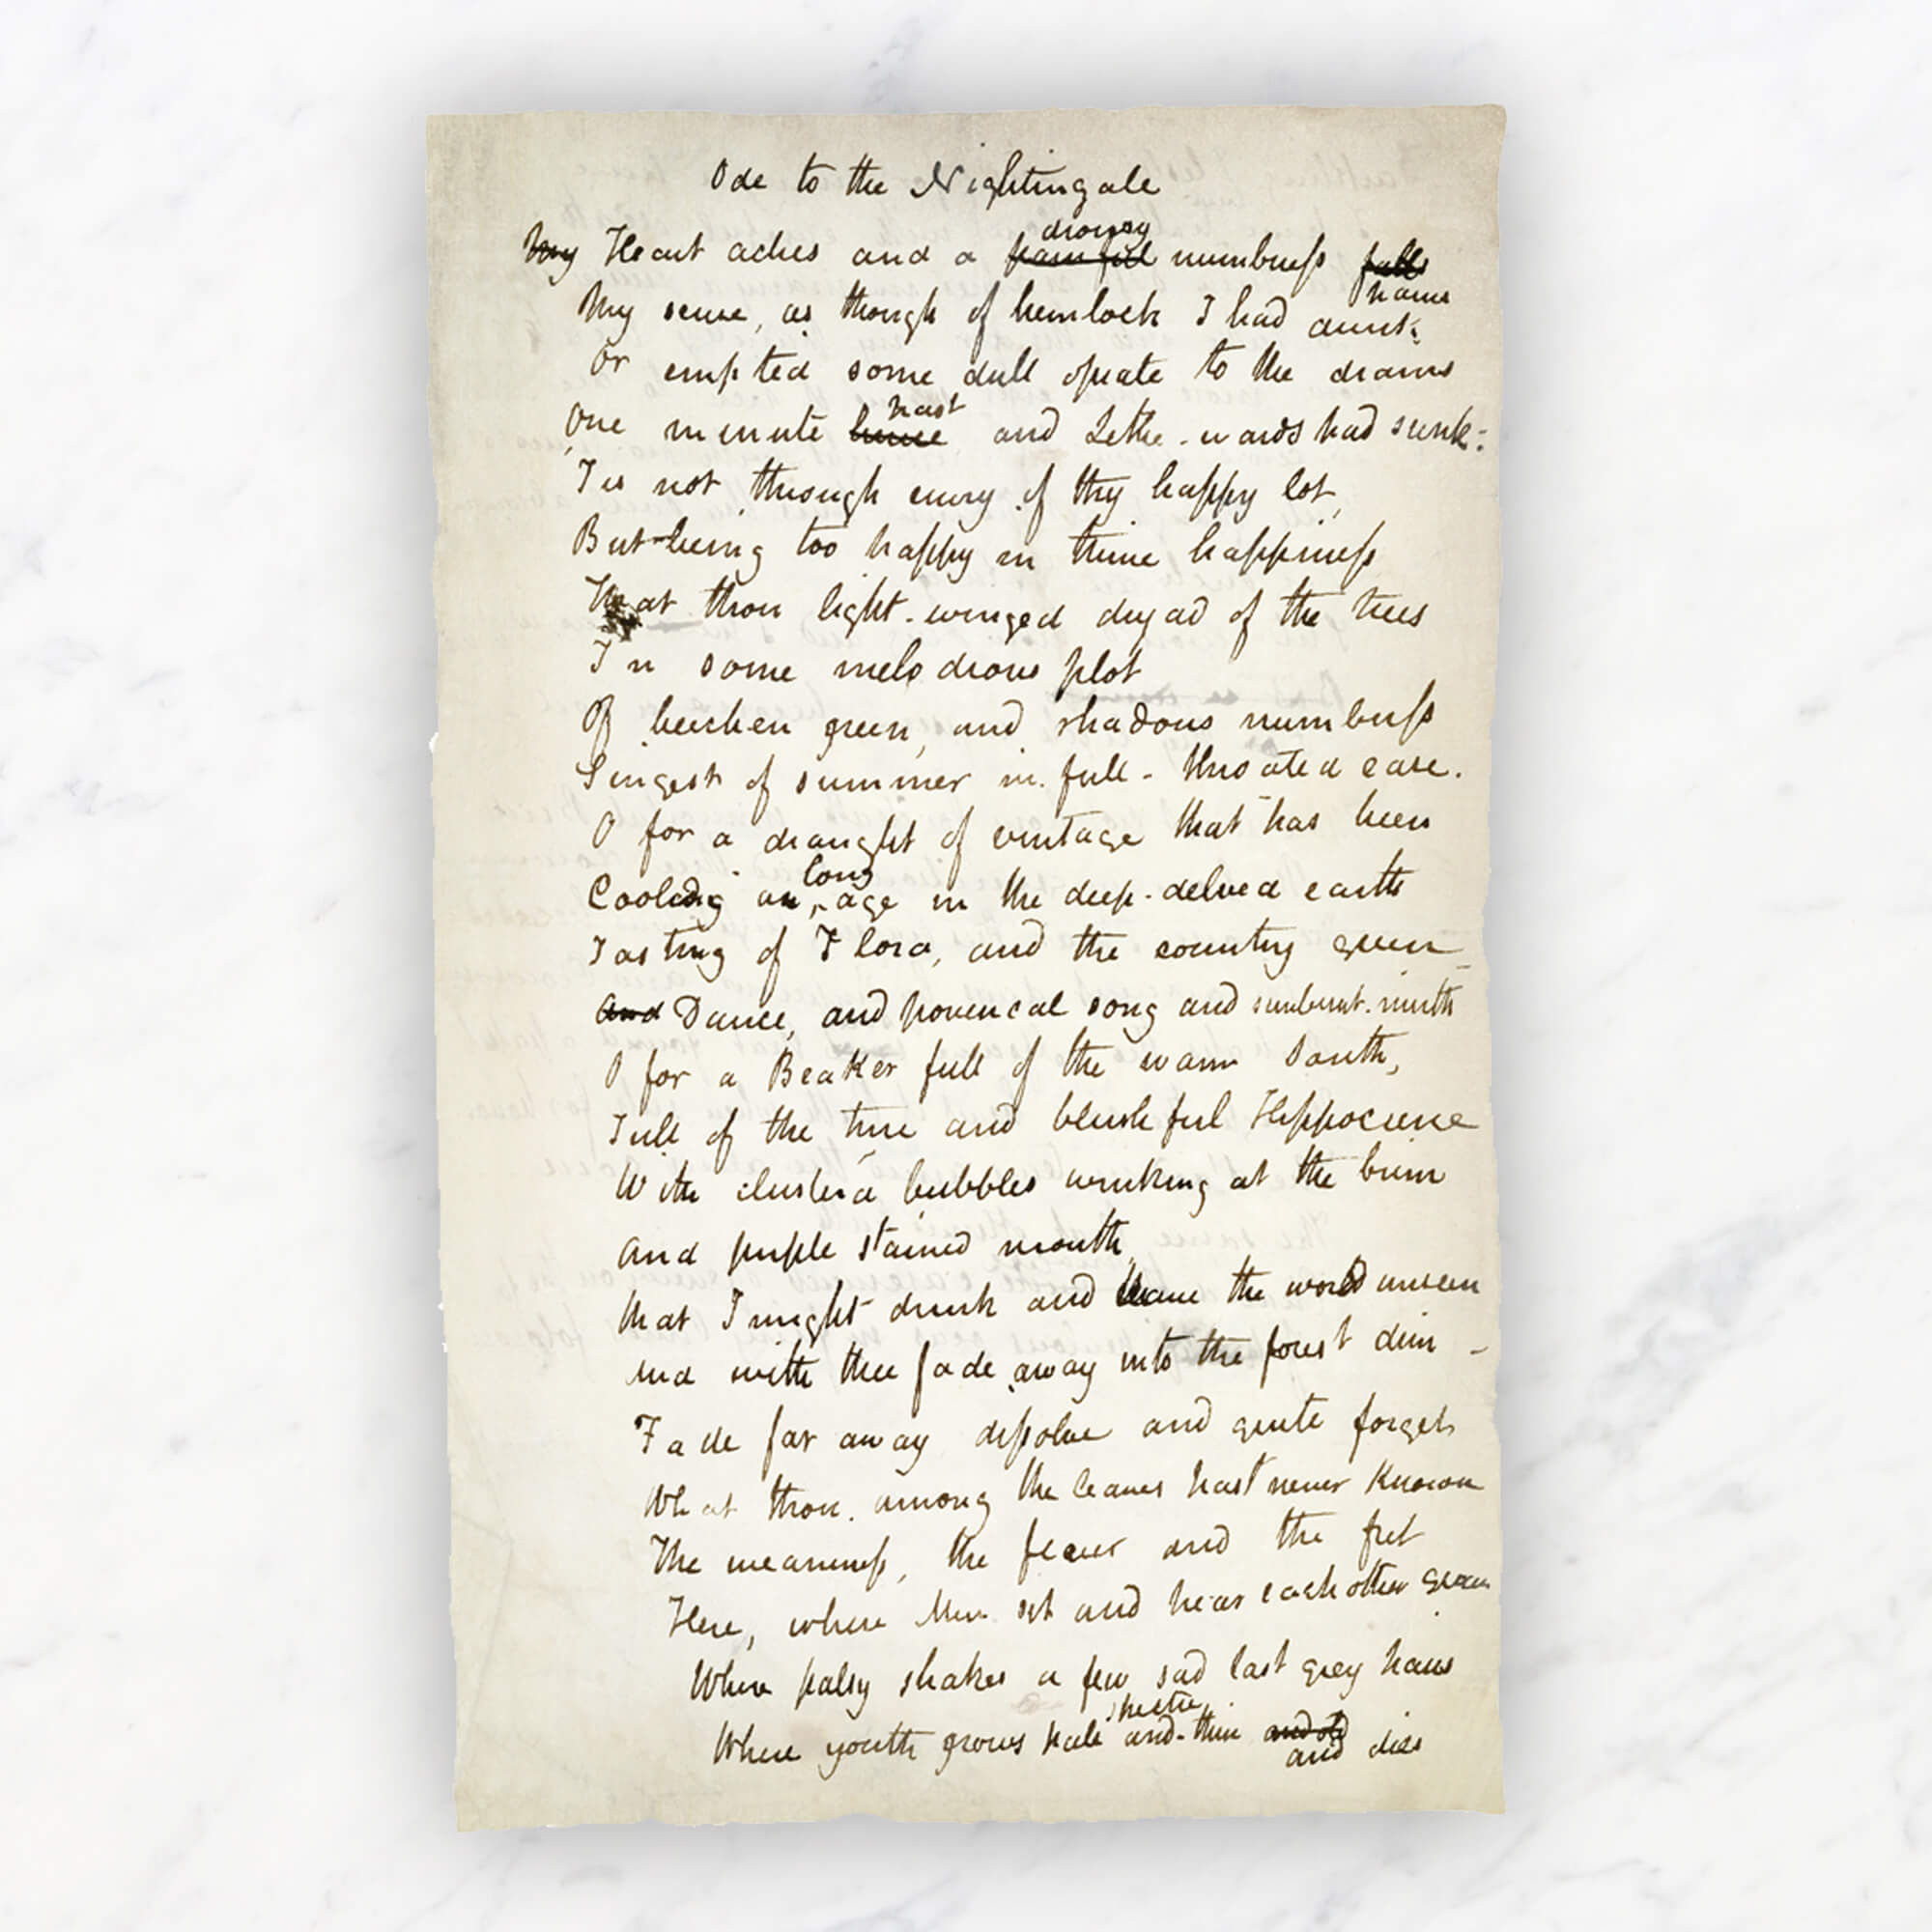 Ode to the Nightingale
drowsy
My Heart aches and a painful numbness falls
pains
My sense, as though of hemlock I had drunk,
Or emptied some dull opiate to the drains
past
One minute hence and Lethe-wards had sunk:
Tis not through envy of thy happy lot,
But being too happy in thine happiness
That thou light-winged dryad of the trees
In some melodious plot
Of beechen green, and shadows numberless
Singest of summer in full-throated ease.
O for a draught of vintage that has been
long
Cooling an age in the deep-delved earth
Tasting of Flora, and the country green
And Dance, and provencal song and sunburnt mirth
O for a Beaker full of the warm South,
Full of the true and blushful Hippocrene
With cluster'd bubbles winking at the brim
And purple stained mouth,
That I might drink and leave the world unseen
And with thee fade away into the forest dim -
Fade far away dissolve and quite forget
What thou among the leaves hast never known
The weariness, the fever and the fret
Here, where Men sit and hear each other groan
Where palsy shakes a few sad last grey hairs
spectre
Where youth grows pale and thin and old dies
and